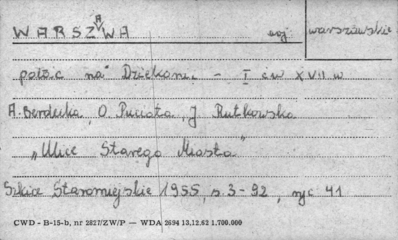 WARSZAWA woj. warszawskie
połac na Dziekanii - I ćw XVII w
A. Berdecka, O. Puciata, J Rutkowska
„Ulice Starego Miasta"
Szkice Staromiejskie 1955, s. 3-92, ryc 41
CWD - B-15-b, nr 2827/ZW/P — WDA 2694 13.12.62 1.700.000